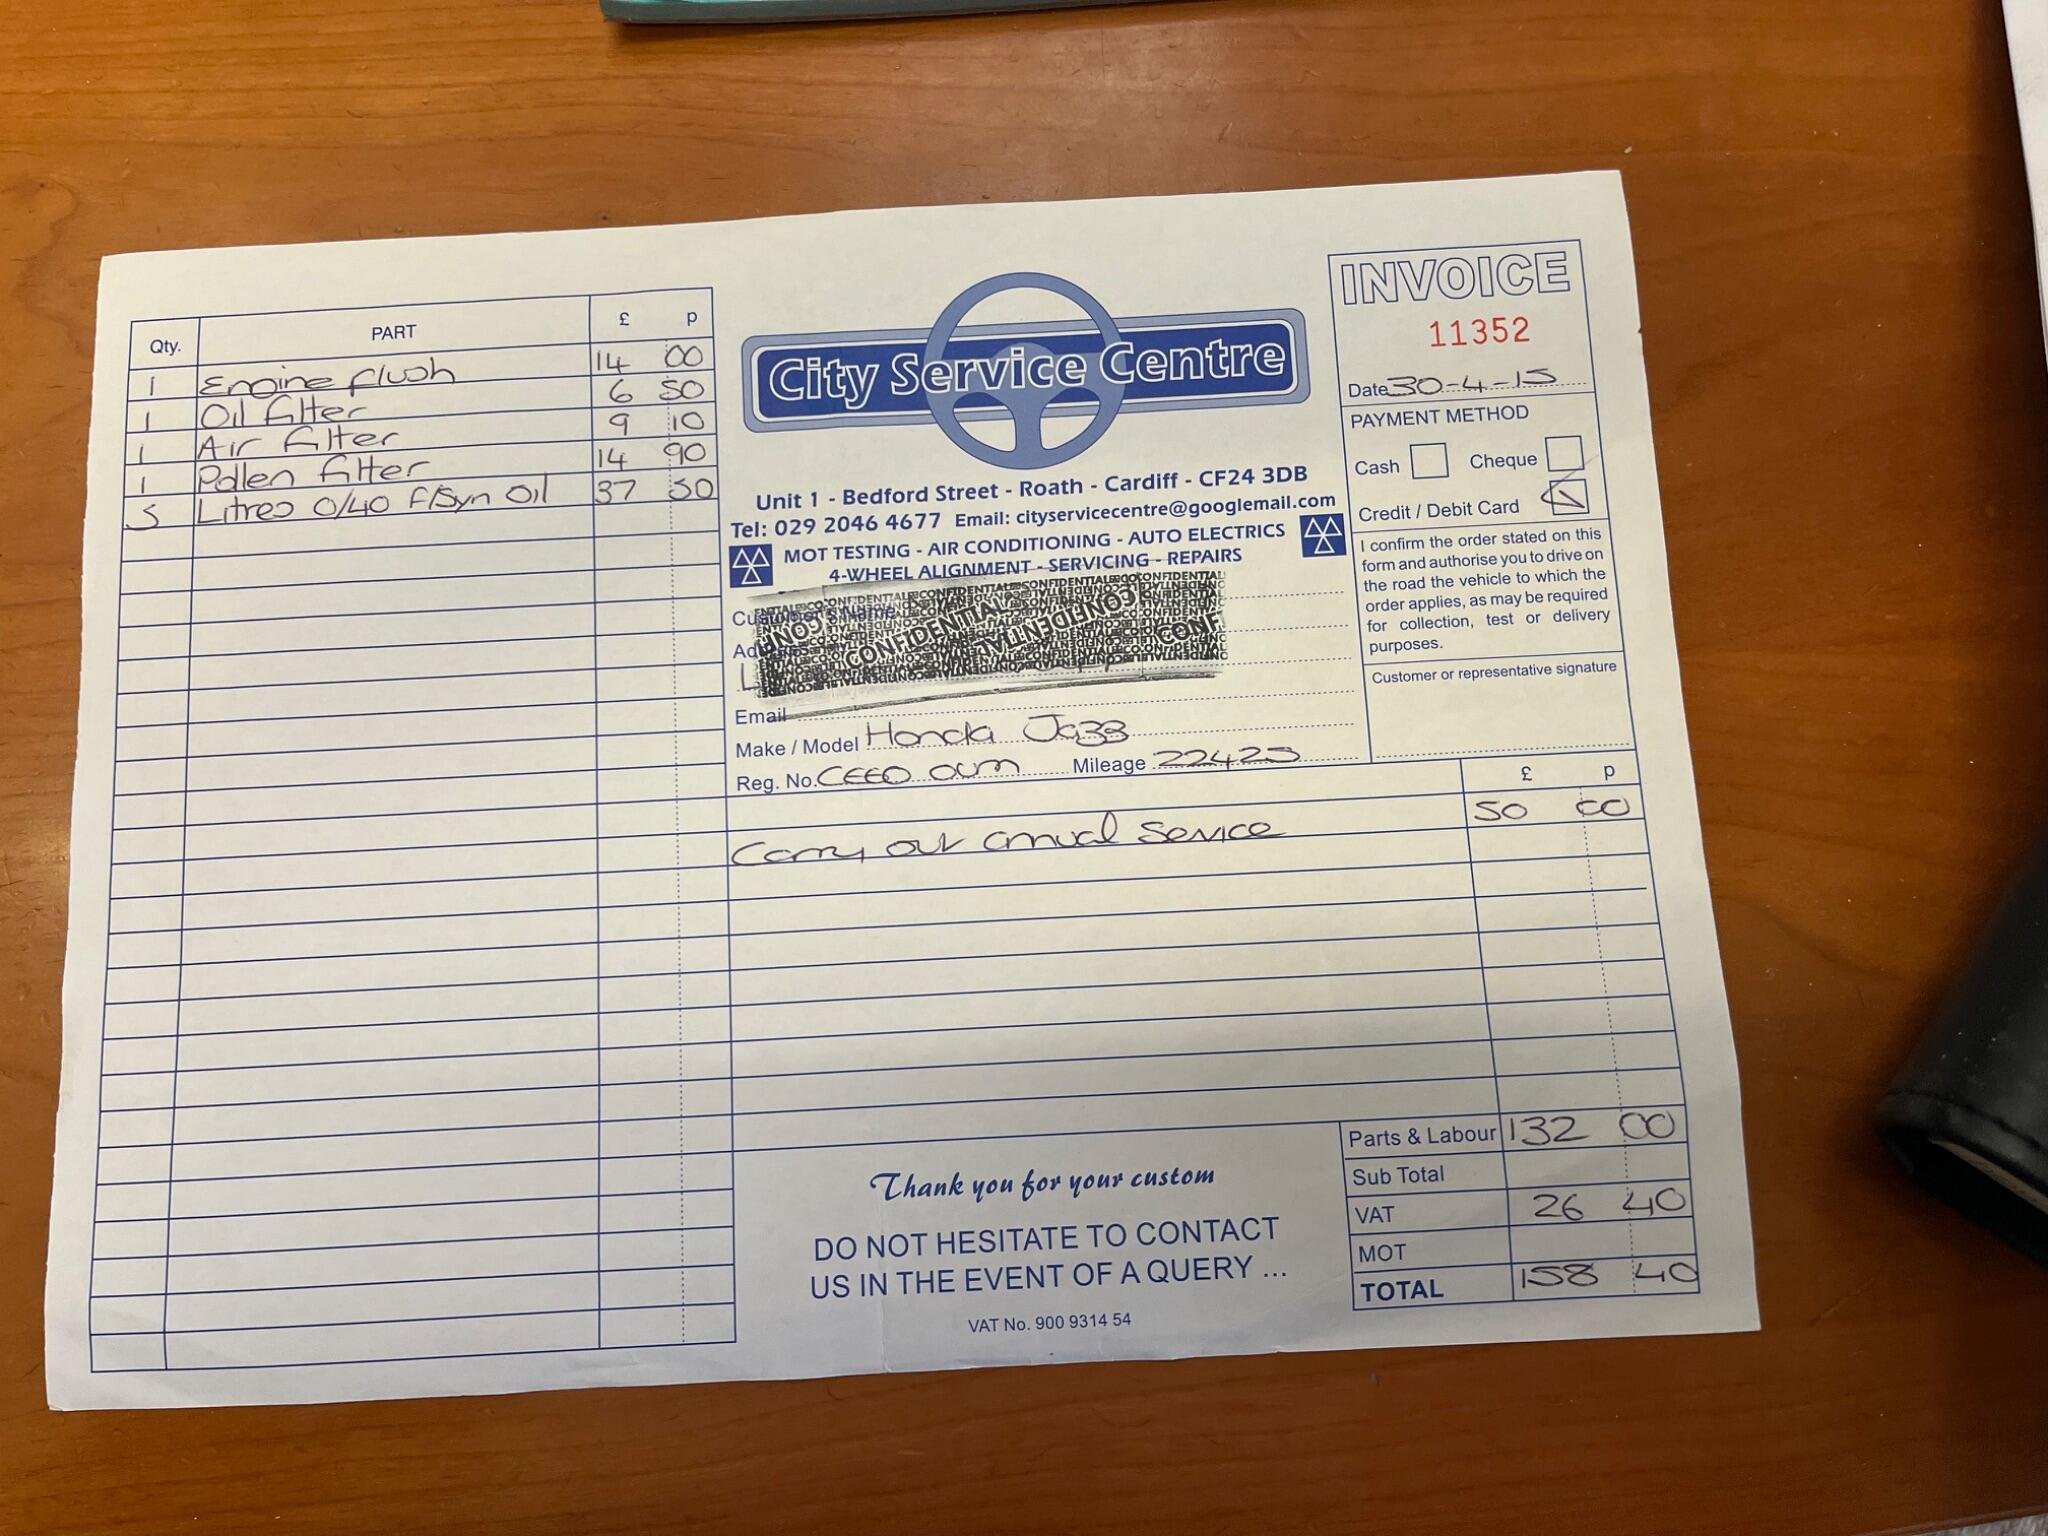 Qty. PART £ p
1 Engine flush 14 00
1 Oil filter 6 50
1 Air filter 9 10
1 Pollen filter 14 90
5 Litres 0/40 F/Syn Oil 37 50
City Service Centre
Unit 1 - Bedford Street - Roath - Cardiff - CF24 3DB
Tel: 029 2046 4677 Email: cityservicecentre@googlemail.com
MOT TESTING - AIR CONDITIONING - AUTO ELECTRICS
4-WHEEL ALIGNMENT - SERVICING - REPAIRS
INVOICE
11352
Date 30-4-15
PAYMENT METHOD
Cash Cheque
Credit / Debit Card
I confirm the order stated on this
form and authorise you to drive on
the road the vehicle to which the
order applies, as may be required
for collection, test or delivery
purposes.
Customer or representative signature
Customer's Name
Address
CONFIDENTIAL CONFIDENTIAL
Email
Make / Model Honda Jazz
Reg. No. Mileage 22425
£ p
Carry out annual service 50 00
Parts & Labour 132 00
Sub Total
VAT 26 40
MOT
TOTAL 158 40
Thank you for your custom
DO NOT HESITATE TO CONTACT
US IN THE EVENT OF A QUERY ...
VAT No. 900 9314 54